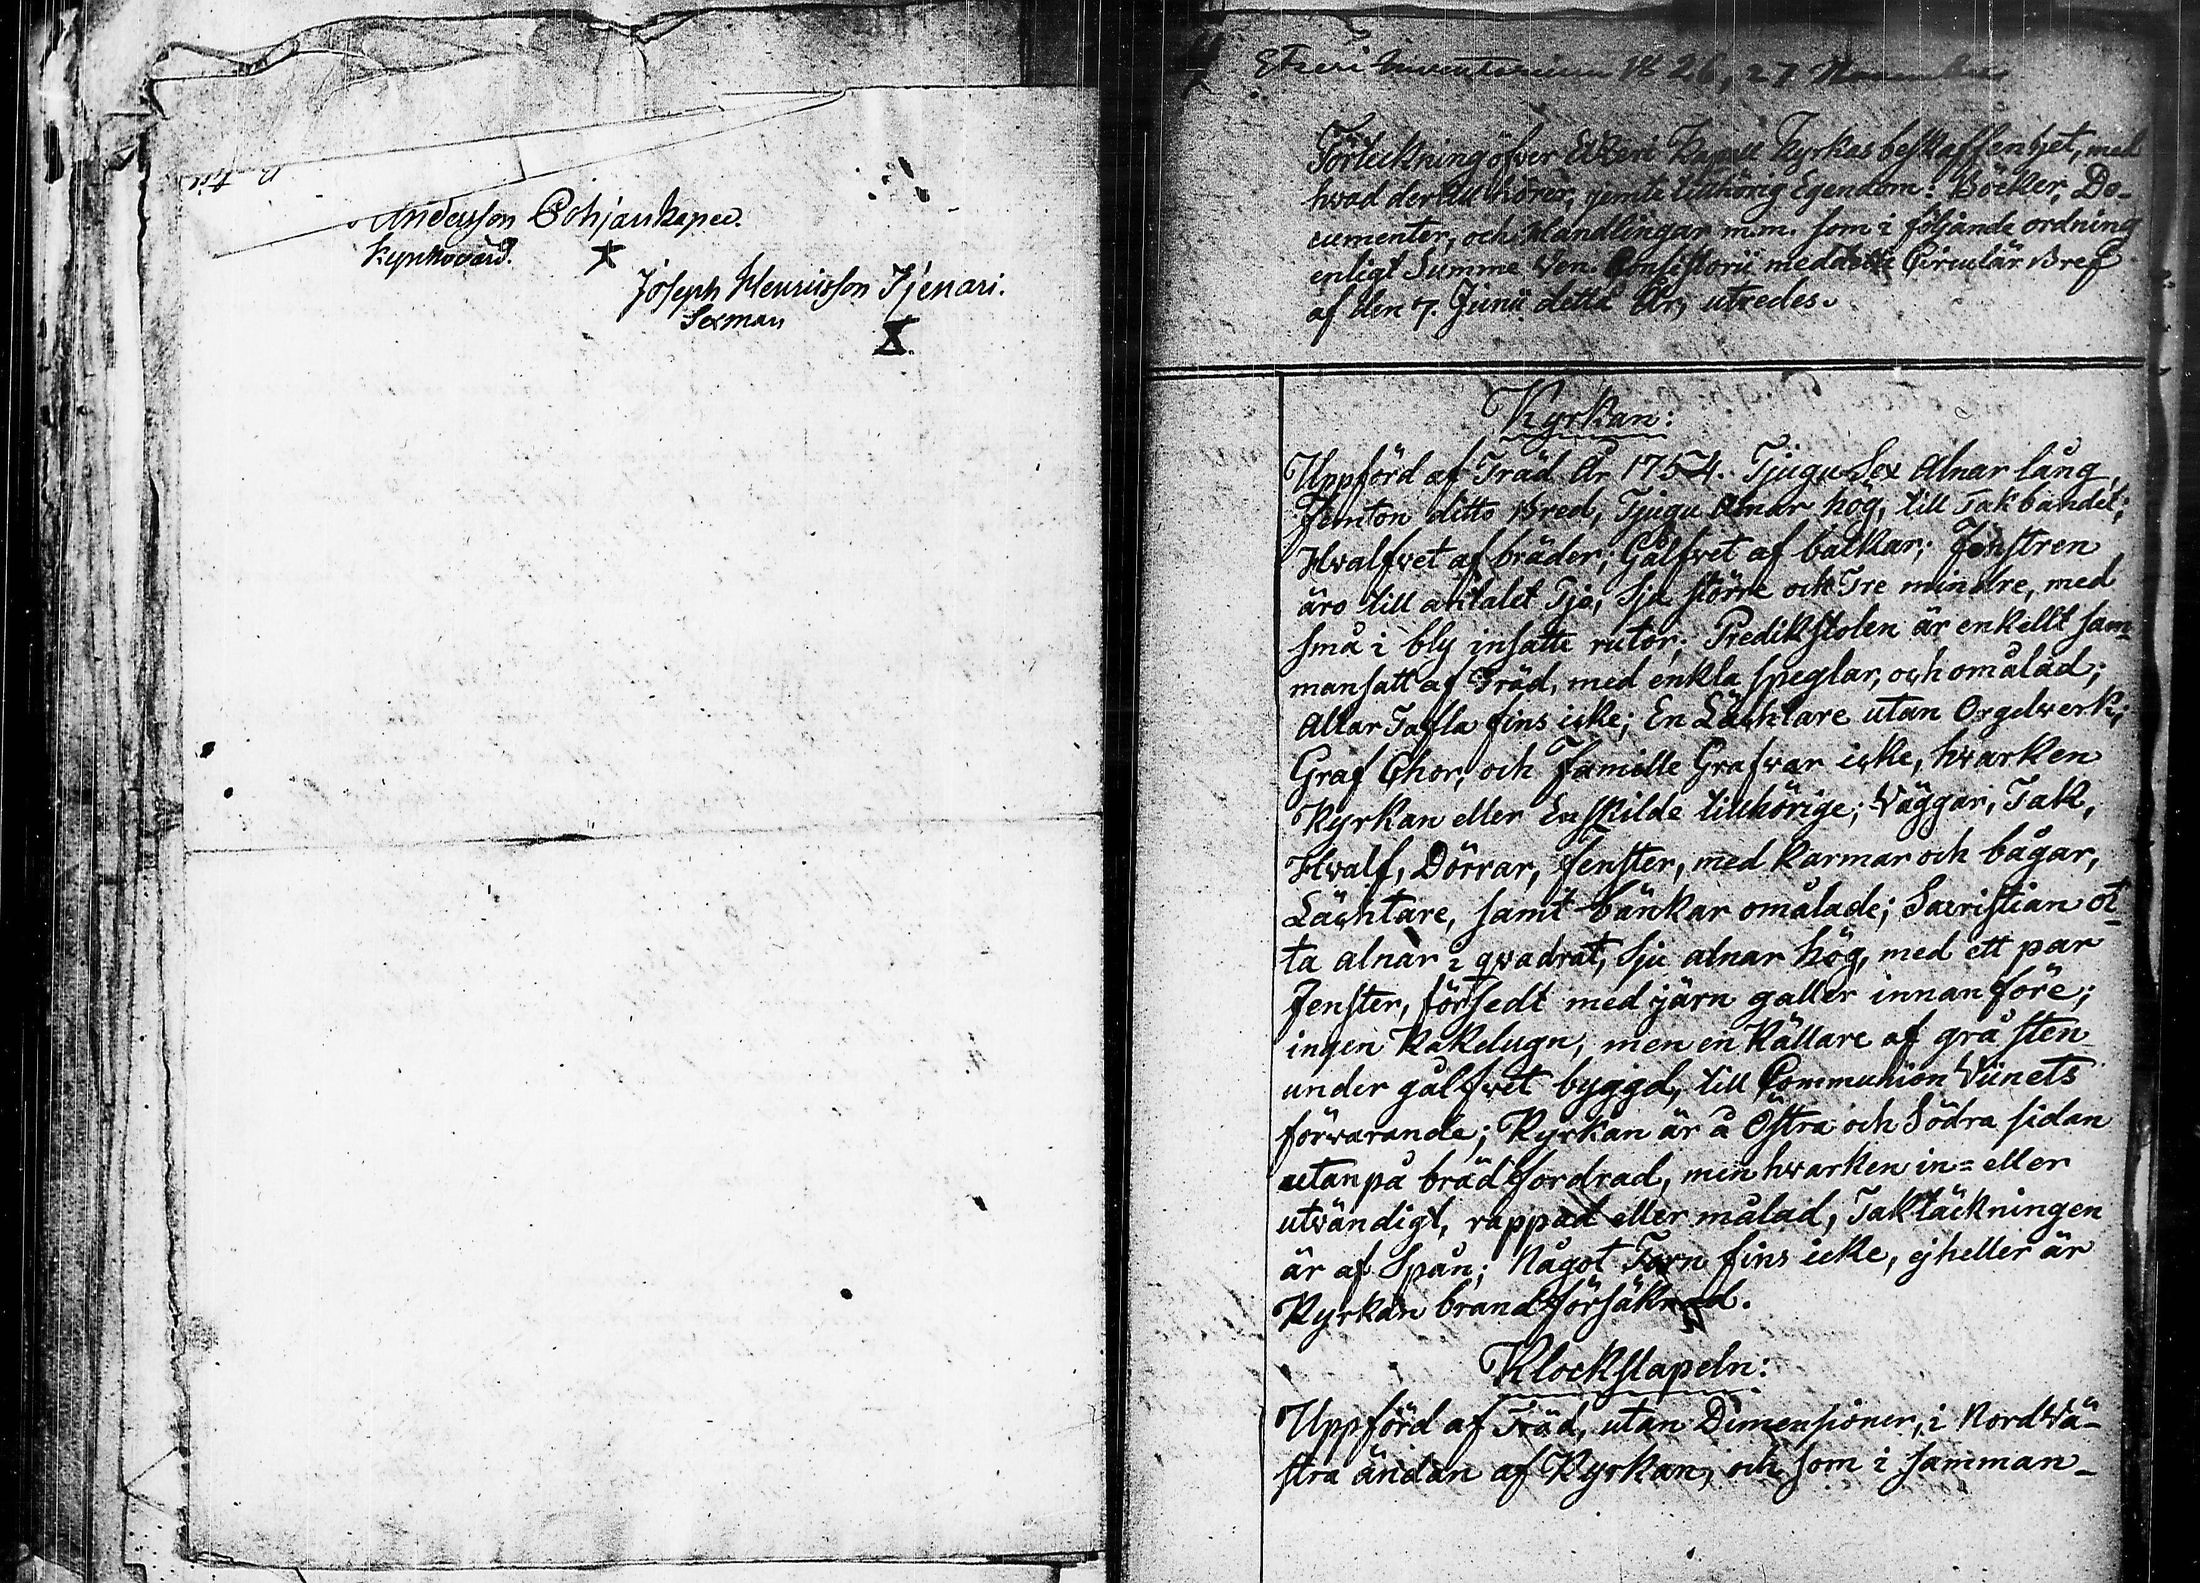 Andersson Pohjankapee.
Kyrkovärd.
Joseph Henricsson Tjenari.
Sexman
X.
Etzeri Inventarium 1826, 27 November
Förteckning öfver Etzeri Kapell Kyrkas beskaffenhet, med
hvad der till hörer, jemte tillhörig Egendom: Böcker, Do-
cumenter, och Handlingar m.m. som i följande ordning
enligt Summe Ven. Consistorii meddelte Circulär Bref
af den 7. Junii detta År, utredes.
Kyrkan:
Uppförd af Träd År 1754. Tjugu Sex Alnar lång,
Femton ditto Bred, Tjugu Alnar hög, till Takbandet;
Hwalfvet af bräder; Gålfvet af balkar; Fenstren
äro till antalet Tjo, Sju större och Tre mindre, med
små i bly insatte rutor; Predikstolen är enkellt sam-
mansatt af Träd, med enkla speglar, och omålad;
Altar Tafla fins icke; En Lächtare utan Orgelwerk;
Graf Chor, och Familie Grafvar icke, hwarken
Kyrkan eller Enskilde tillhörige; Väggar, Tak,
Hwalf, Dörrar, fenster, med karmar och bågar,
Lächtare, samt bänkar omålade; Sacristian ot-
ta alnar i qvadrat, Sju alnar hög, med ett par
Fenster, försedt med järn galler innanföre;
ingen Kakelugn, men en Källare af grå sten
under gålfvet byggd, till Communion Viinets
förvarande; Kyrkan är å Östra och Södra sidan
utanpå brädfordrad, men hwarken in= eller
utvändigt, rappad eller målad, Taktäckningen
är af Spån; Något Torn fins icke, ej heller är
Kyrkan brandförsäkrad.
Klockstapeln:
Uppförd af Träd, utan Dimensioner, i Nord Vä-
stra ändan af Kyrkan, och som i samman-